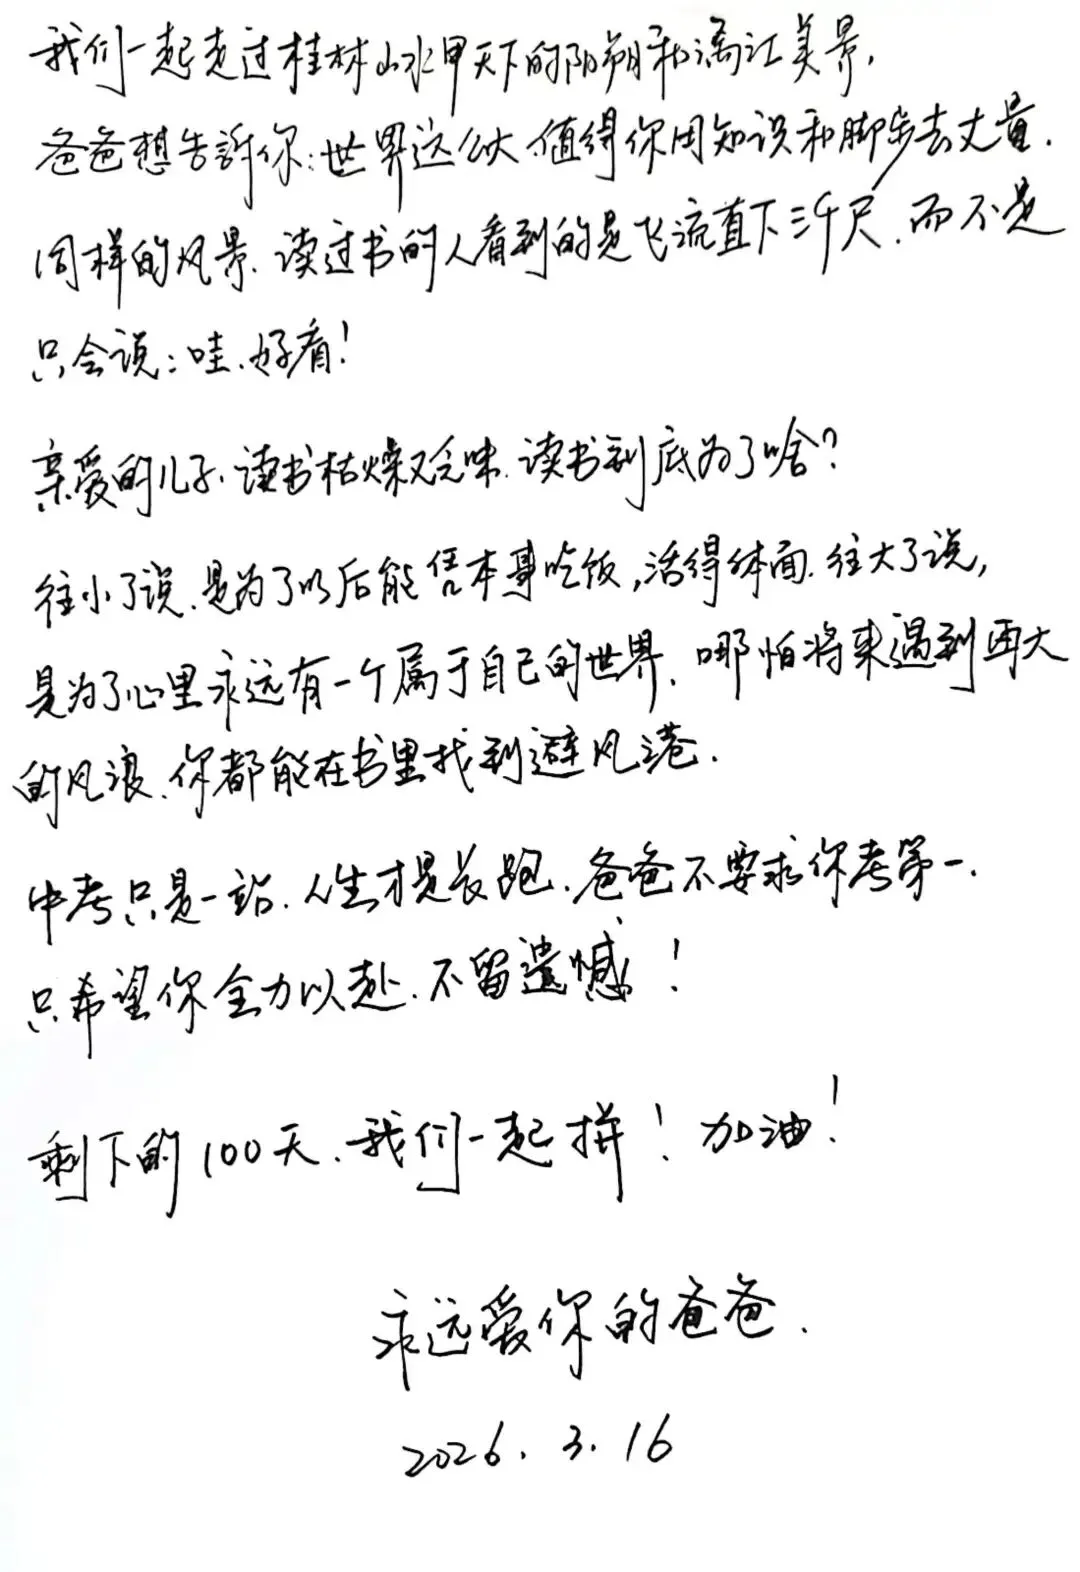 我们一起走过桂林山水甲天下的阳朔和漓江美景,
爸爸想告訴你:世界这么大.值得你用知识和脚步去丈量.
同样的风景.读过书的人看到的是飞流直下三千尺.而不是
只会说:哇.好看!
亲爱的儿子.读书枯燥又乏味.读书到底为了啥?
往小了说.是为了以后能凭本事吃饭,活得体面.往大了说,
是为了心里永远有一个属于自己的世界.哪怕将来遇到再大
的风浪.你都能在书里找到避风港.
中考只是一站.人生才是长跑.爸爸不要求你考第一.
只希望你全力以赴.不留遗憾!
剩下的100天.我们一起拼!加油!
永远爱你的爸爸.
2026.3.16